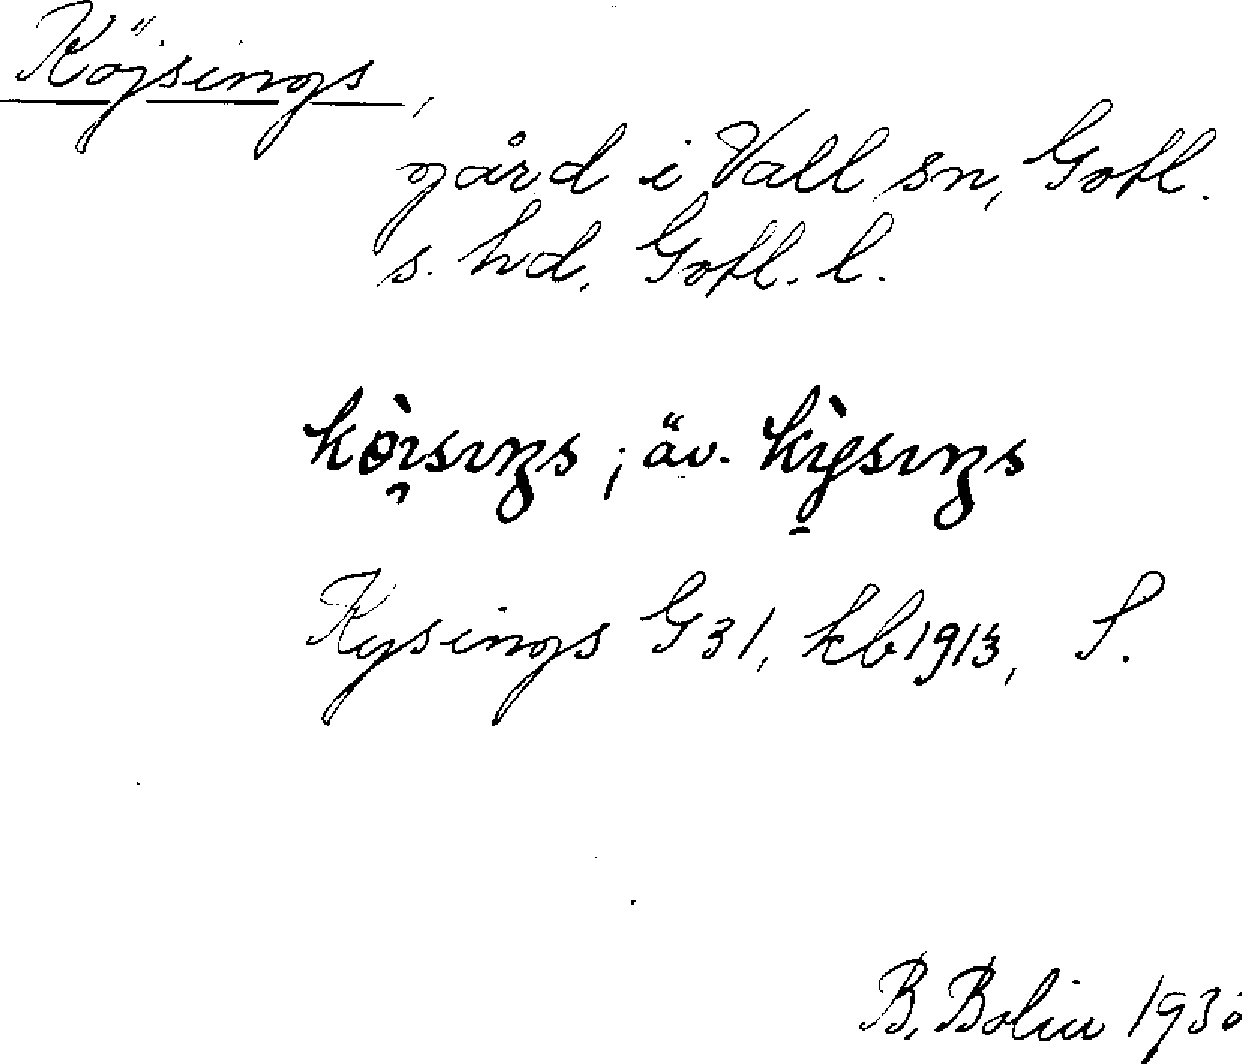 Köjsings,
gård i Vall sn, Gotl.
s. hd, Gotl. l.
kø̀ısıŋs; äv. kỳsıŋs
Kysings G31, kb1913, S.
B. Bolin 1930